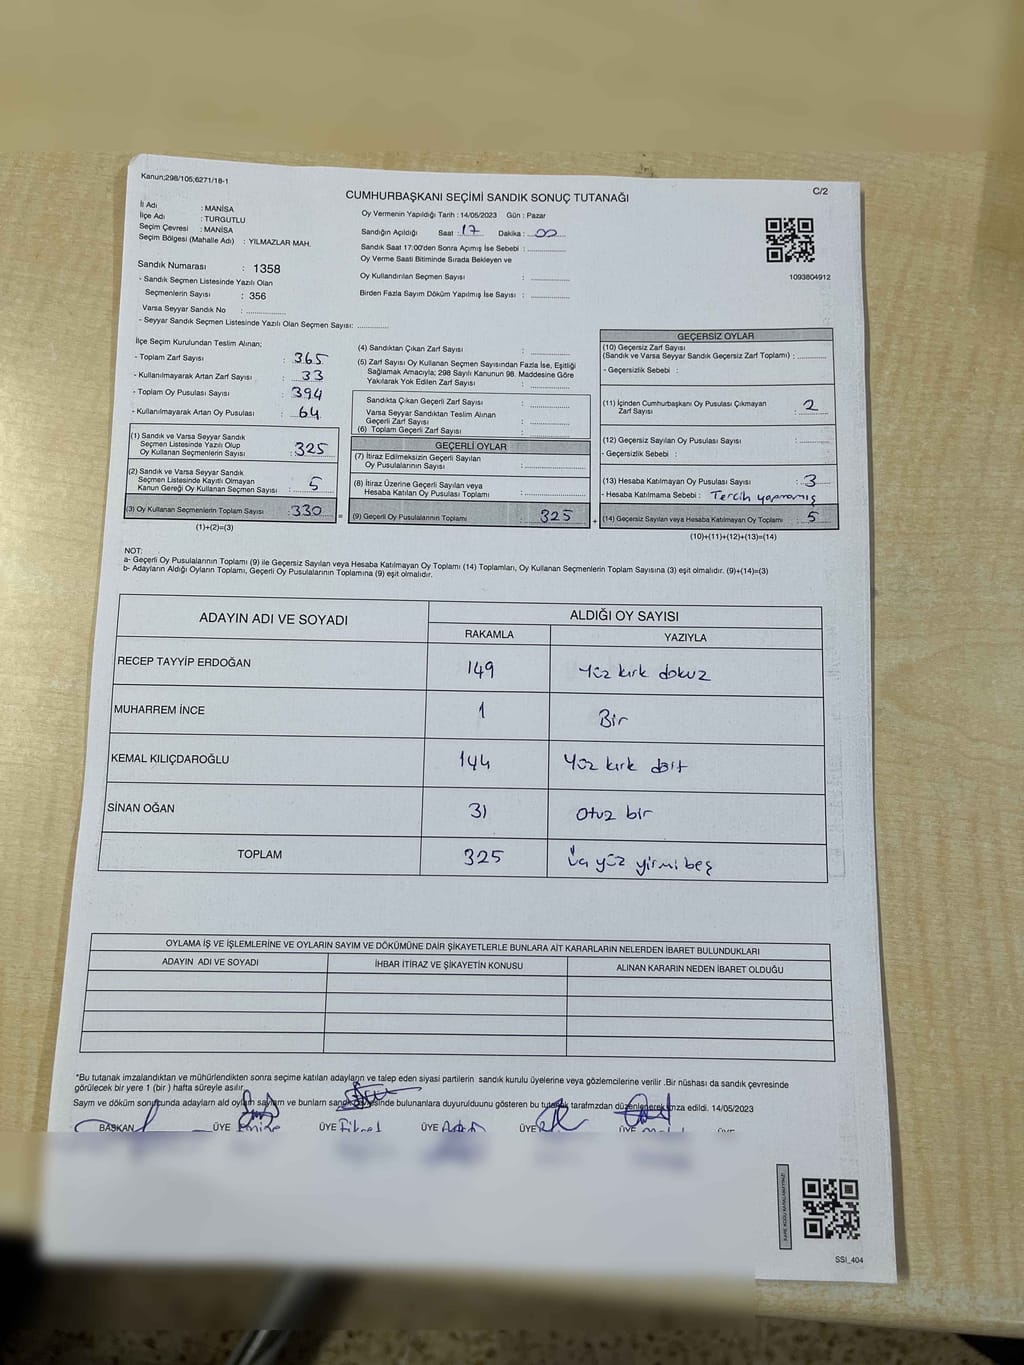 Kanun;298/105;6271/18-1
C/2
CUMHURBAŞKANI SEÇİMİ SANDIK SONUÇ TUTANAĞI
İl Adı : MANİSA
İlçe Adı : TURGUTLU
Seçim Çevresi : MANİSA
Seçim Bölgesi (Mahalle Adı) : YILMAZLAR MAH.
Sandık Numarası : 1358
- Sandık Seçmen Listesinde Yazılı Olan
Seçmenlerin Sayısı : 356
Varsa Seyyar Sandık No :
- Seyyar Sandık Seçmen Listesinde Yazılı Olan Seçmen Sayısı:
Oy Vermenin Yapıldığı Tarih : 14/05/2023 Gün : Pazar
Sandığın Açıldığı Saat : 17 Dakika : 00
Sandık Saat 17:00'den Sonra Açımış İse Sebebi :
Oy Verme Saati Bitiminde Sırada Bekleyen ve
Oy Kullandırılan Seçmen Sayısı :
Birden Fazla Sayım Döküm Yapılmış İse Sayısı :
1093804912
İlçe Seçim Kurulundan Teslim Alınan;
- Toplam Zarf Sayısı : 365
- Kullanılmayarak Artan Zarf Sayısı : 33
- Toplam Oy Pusulası Sayısı : 394
- Kullanılmayarak Artan Oy Pusulası : 64
(1) Sandık ve Varsa Seyyar Sandık
Seçmen Listesinde Yazılı Olup
Oy Kullanan Seçmenlerin Sayısı : 325
(2) Sandık ve Varsa Seyyar Sandık
Seçmen Listesinde Kayıtlı Olmayan
Kanun Gereği Oy Kullanan Seçmen Sayısı : 5
(3) Oy Kullanan Seçmenlerin Toplam Sayısı : 330
(1)+(2)=(3)
(4) Sandıktan Çıkan Zarf Sayısı :
(5) Zarf Sayısı Oy Kullanan Seçmen Sayısından Fazla İse, Eşitliği
Sağlamak Amacıyla; 298 Sayılı Kanunun 98. Maddesine Göre
Yakılarak Yok Edilen Zarf Sayısı :
Sandıkta Çıkan Geçerli Zarf Sayısı :
Varsa Seyyar Sandıktan Teslim Alınan
Geçerli Zarf Sayısı :
(6) Toplam Geçerli Zarf Sayısı :
GEÇERLİ OYLAR
(7) İtiraz Edilmeksizin Geçerli Sayılan
Oy Pusulalarının Sayısı :
(8) İtiraz Üzerine Geçerli Sayılan veya
Hesaba Katılan Oy Pusulası Toplamı :
= (9) Geçerli Oy Pusulalarının Toplamı 325
GEÇERSİZ OYLAR
(10) Geçersiz Zarf Sayısı
(Sandık ve Varsa Seyyar Sandık Geçersiz Zarf Toplamı) :
- Geçersizlik Sebebi :
(11) İçinden Cumhurbaşkanı Oy Pusulası Çıkmayan
Zarf Sayısı : 2
(12) Geçersiz Sayılan Oy Pusulası Sayısı :
- Geçersizlik Sebebi :
(13) Hesaba Katılmayan Oy Pusulası Sayısı : 3
- Hesaba Katılmama Sebebi : Tercih yapmamış
+ (14) Geçersiz Sayılan veya Hesaba Katılmayan Oy Toplamı : 5
(10)+(11)+(12)+(13)=(14)
NOT:
a- Geçerli Oy Pusulalarının Toplamı (9) ile Geçersiz Sayılan veya Hesaba Katılmayan Oy Toplamı (14) Toplamları, Oy Kullanan Seçmenlerin Toplam Sayısına (3) eşit olmalıdır. (9)+(14)=(3)
b- Adayların Aldığı Oyların Toplamı, Geçerli Oy Pusulalarının Toplamına (9) eşit olmalıdır.
ADAYIN ADI VE SOYADI
ALDIĞI OY SAYISI
RAKAMLA YAZIYLA
RECEP TAYYİP ERDOĞAN 149 Yüz kırk dokuz
MUHARREM İNCE 1 Bir
KEMAL KILIÇDAROĞLU 144 Yüz kırk dört
SİNAN OĞAN 31 Otuz bir
TOPLAM 325 Üç yüz yirmi beş
OYLAMA İŞ VE İŞLEMLERİNE VE OYLARIN SAYIM VE DÖKÜMÜNE DAİR ŞİKAYETLERLE BUNLARA AİT KARARLARIN NELERDEN İBARET BULUNDUKLARI
ADAYIN ADI VE SOYADI
İHBAR İTİRAZ VE ŞİKAYETİN KONUSU
ALINAN KARARIN NEDEN İBARET OLDUĞU
*Bu tutanak imzalandıktan ve mühürlendikten sonra seçime katılan adayların ve talep eden siyasi partilerin sandık kurulu üyelerine veya gözlemcilerine verilir .Bir nüshası da sandık çevresinde
görülecek bir yere 1 (bir ) hafta süreyle asılır.
Sayım ve döküm sonucunda adayların ald oyların sayısını ve bunların bulunanlara duyurulduunu gösteren bu tutanak tarafmzdan düzenlenerek imza edildi. 14/05/2023
BAŞKAN ÜYE ÜYE Fikret ÜYE ÜYE ÜYE ÜYE
SSI_404